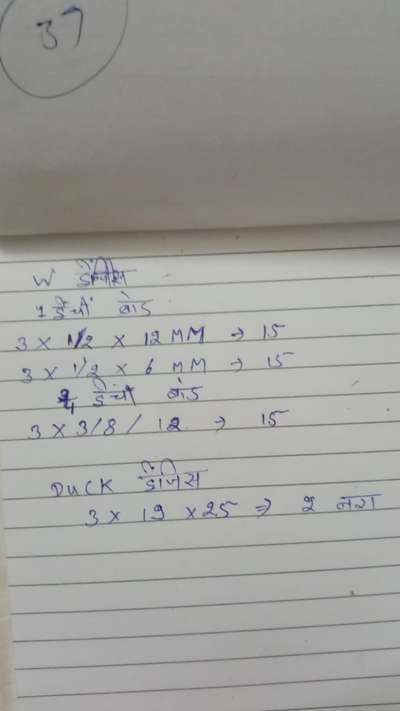 37
W डेंजिस
1 इंची बोर्ड
3 × 1/2 × 12 MM → 15
3 × 1/2 × 6 MM → 15
इंची बोर्ड
3 × 3/8 / 12 → 15
DUCK डेंजिस
3 × 19 × 25 ⇒ 2 नग